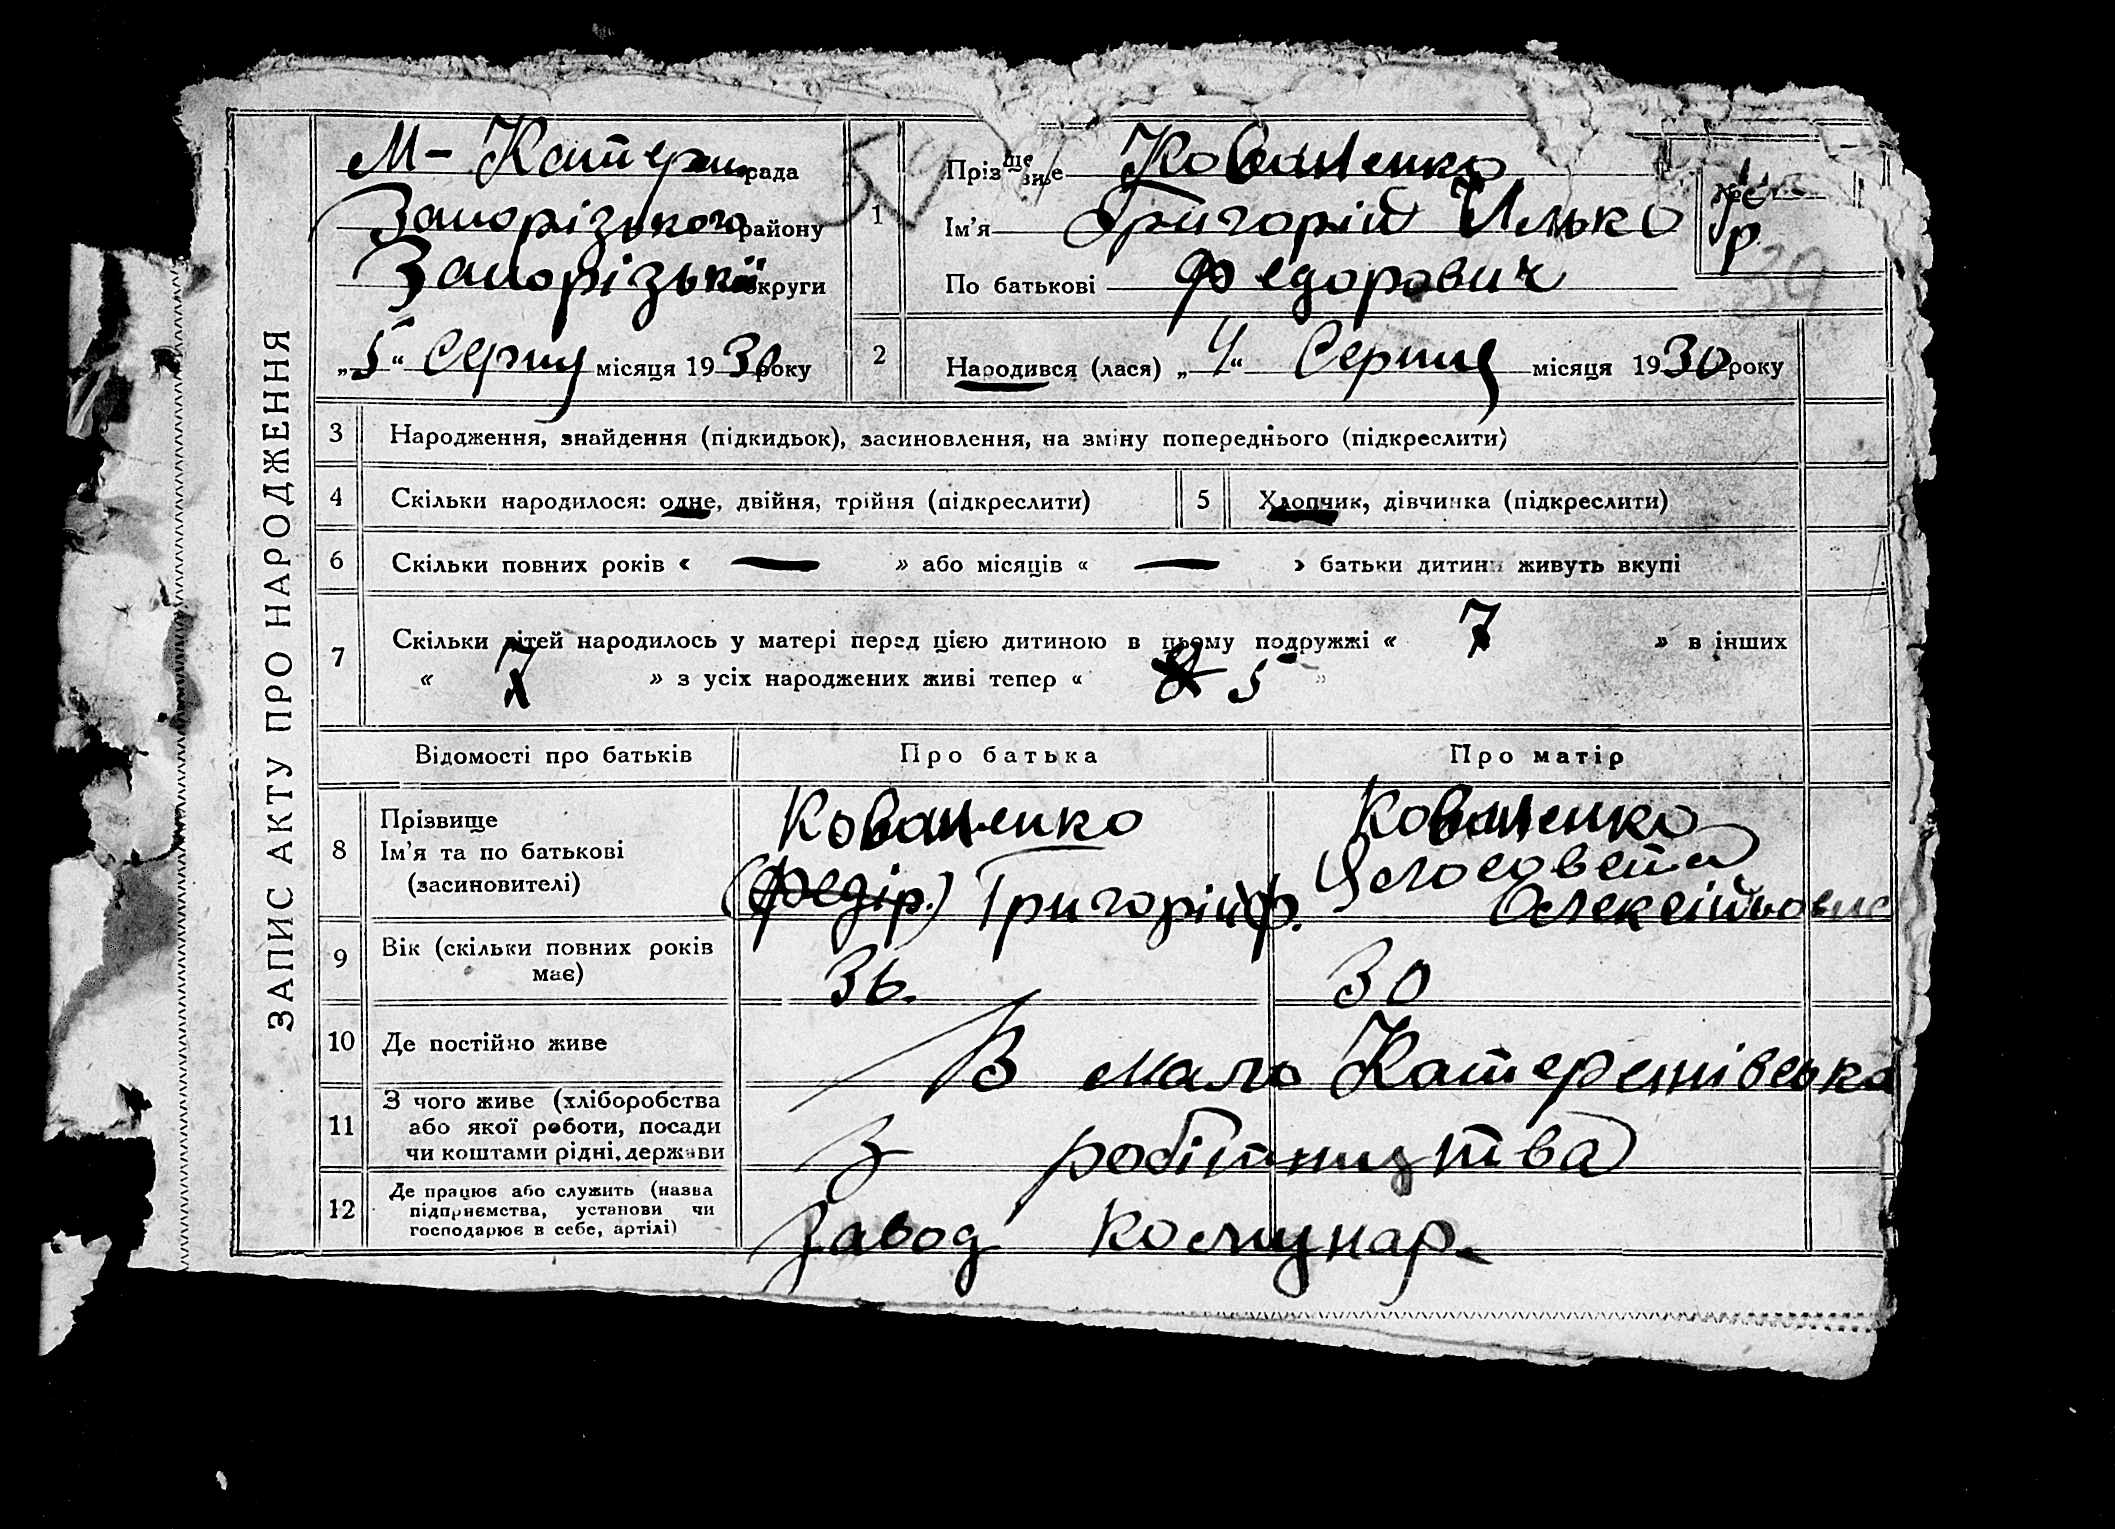 ЗАПИС АКТУ ПРО НАРОДЖЕННЯ
М-Катерин рада
Запорізького району
Запорізькій округи
„5“ Серпня місяця 1930 року
59
1 Прізвище Коваленко
Ім'я Григорій Илько
По батькові Федорович
39
2 Народився (лася) „4“ Серпня місяця 1930 року
3 Народження, знайдення (підкидьок), засиновлення, на зміну попереднього (підкреслити)
4 Скільки народилося: одне, двійня, трійня (підкреслити) 5 Хлопчик, дівчинка (підкреслити)
6 Скільки повних років « — » або місяців « — » батьки дитини живуть вкупі
7 Скільки дітей народилось у матері перед цією дитиною в цьому подружжі « 7 » в інших
« 7 » з усіх народжених живі тепер « 5 »
Відомості про батьків Про батька Про матір
8 Прізвище
Ім'я та по батькові
(засиновителі)
Коваленко
(Федір.) Григорій Ф.
Коваленко
Олексіївна
9 Вік (скільки повних років
має)
36. 30
10 Де постійно живе В мало Катеринівська
11 З чого живе (хліборобства
або якої роботи, посади
чи коштами рідні, держави
З робітництва
12 Де працює або служить (назва
підприємства, установи чи
господарює в себе, артілі)
Завод Комунар.